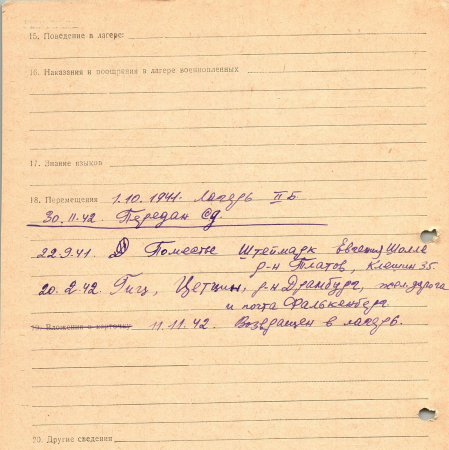 15. Поведение в лагере:
16. Наказания и поощрения в лагере военнопленных
17. Знание языков
18. Перемещения 1.10.1941. лагерь II Б
30.11.42. Передан СД
22.9.41. Поместье Штеймарк Евгений Шолле
р-н Платов, Клешин 35.
20.2.42. Гигц, Цетцин, р-н Драмбург, жел. дорога
и почта Фалькенберг
19. Вложения в карточку 11.11.42. Возвращен в лагерь.
20. Другие сведения